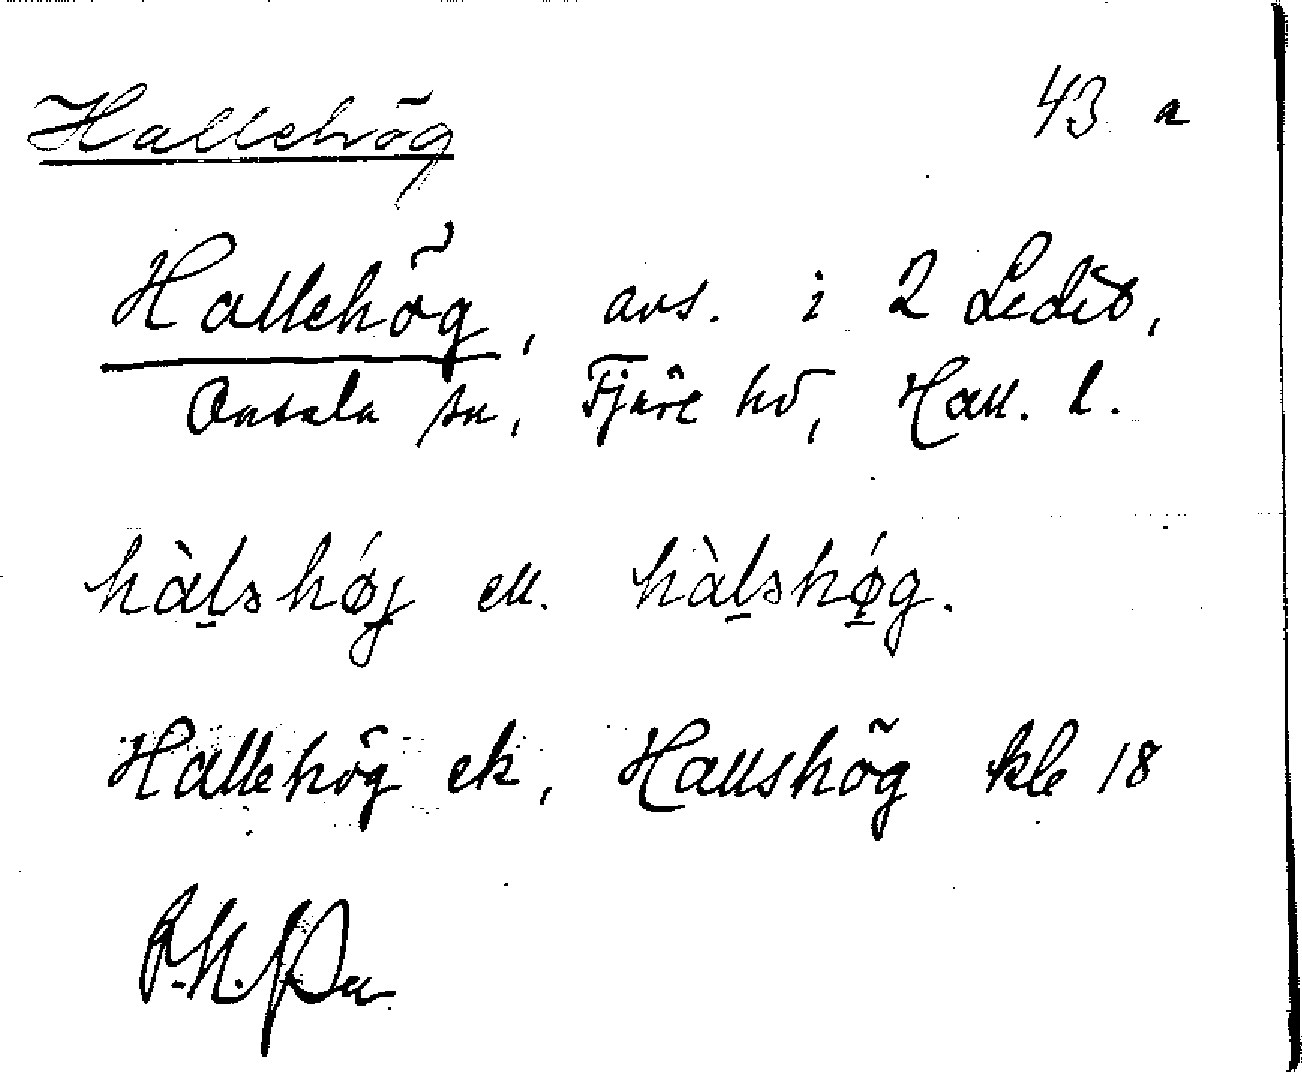 Hallehög 43 a
Hallehög, avs. i 2 Ledet,
Onsala sn, Fjäre hd, Hall. l.
hàlshǿj ell. hàlshǿg.
Hallehög ek, Hallshög kle 18